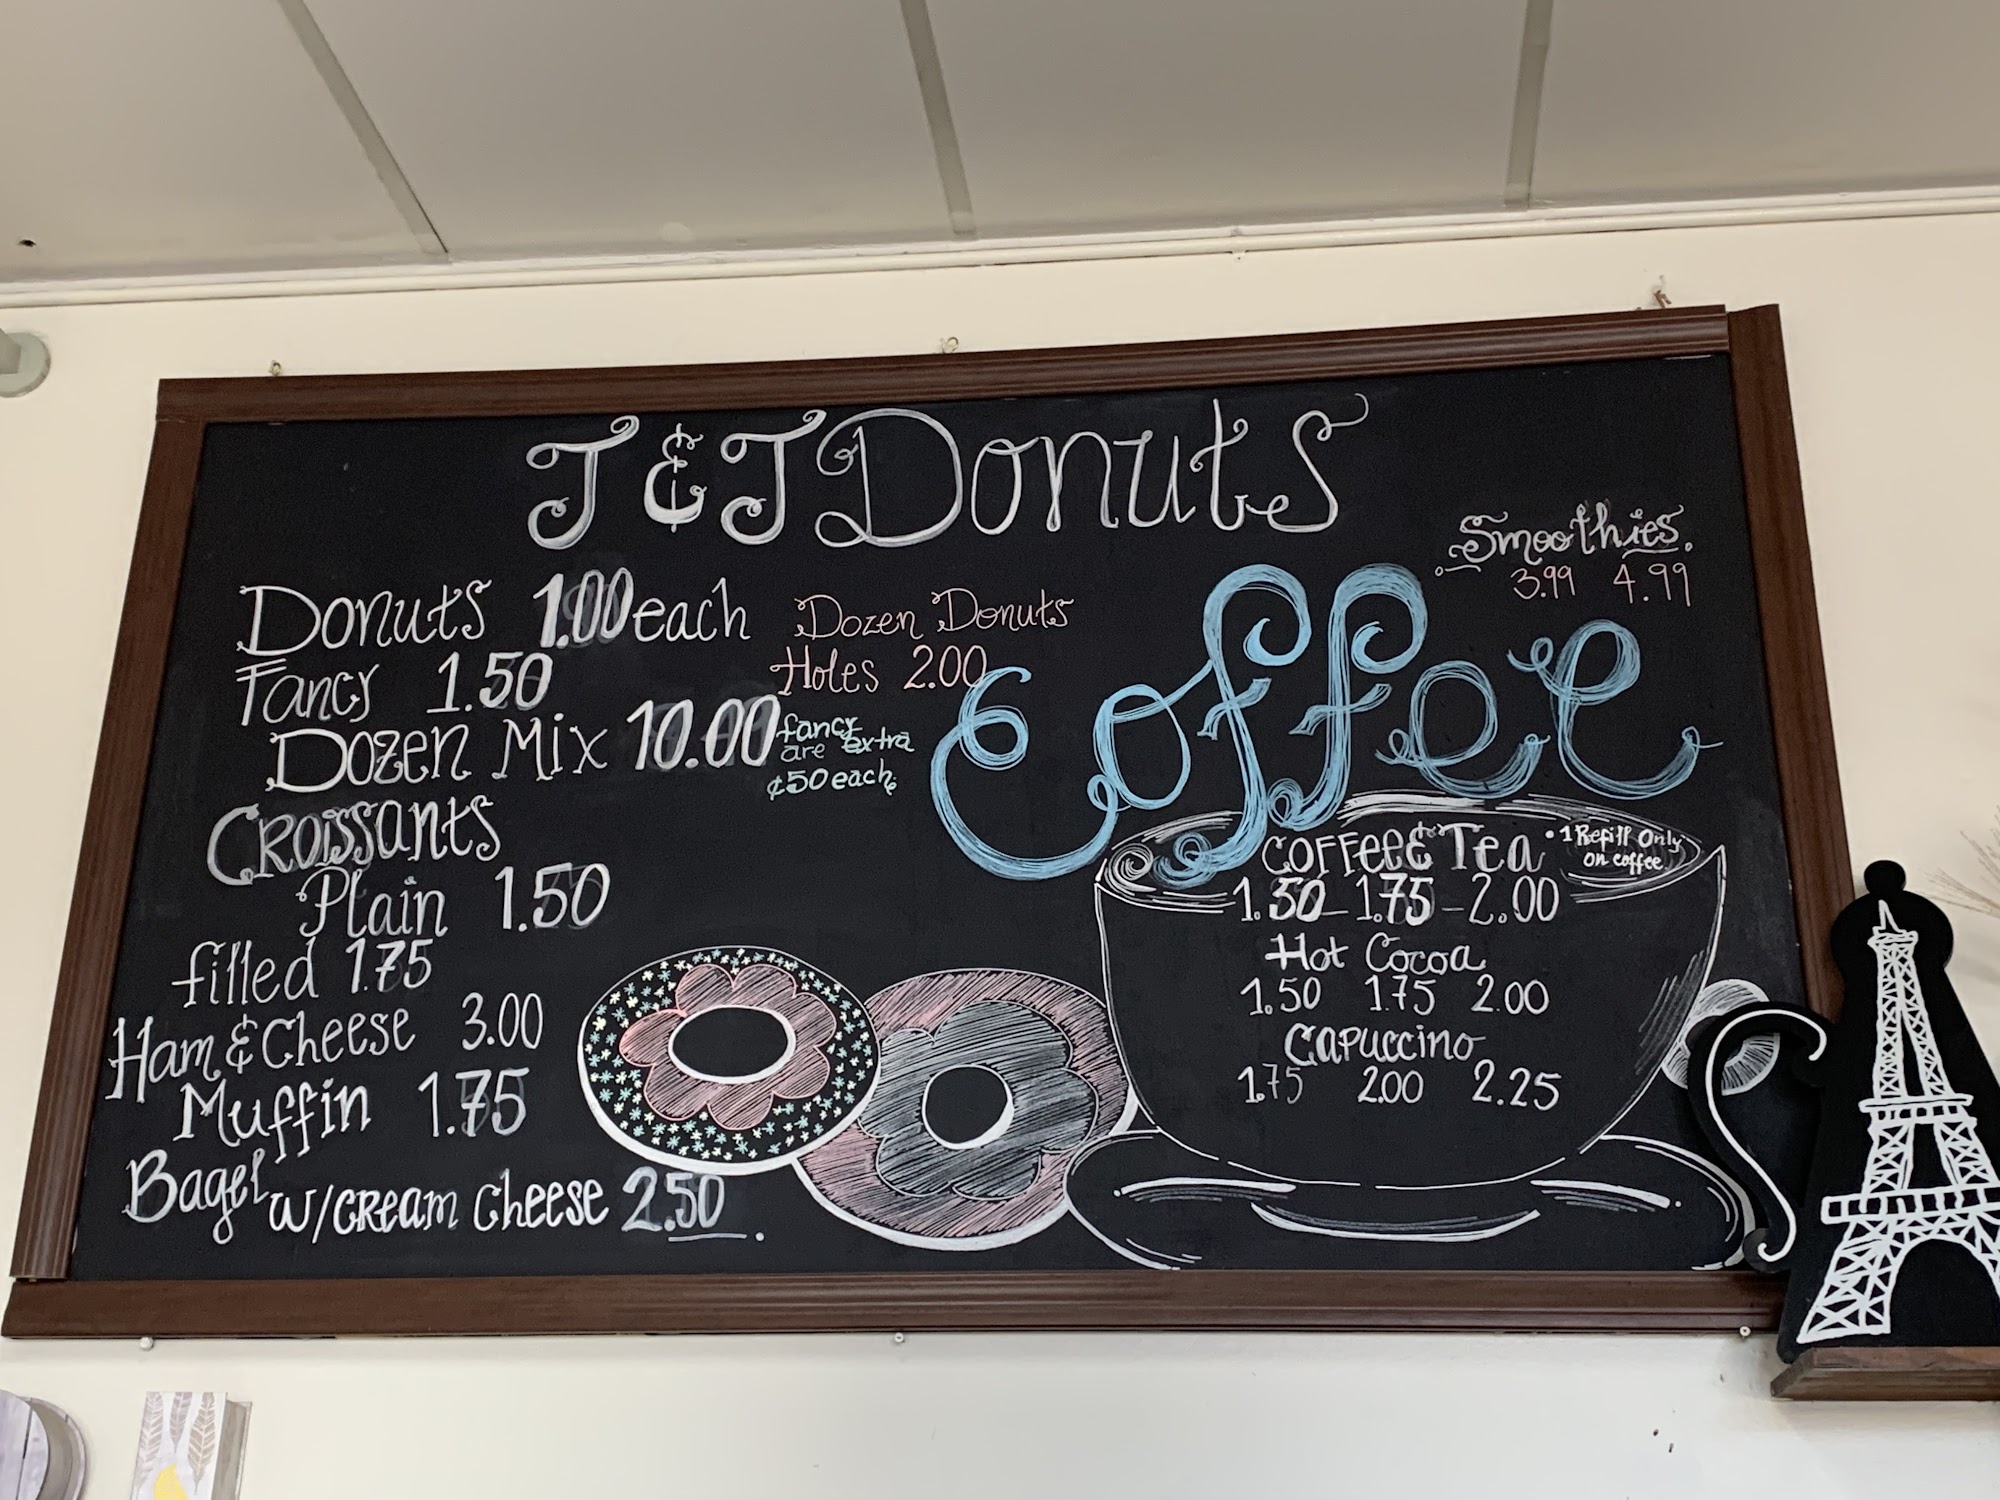 J & J Donuts
Donuts 1.00 each
Fancy 1.50
Dozen Mix 10.00
Dozen Donuts
Holes 2.00
fancy
are extra
¢50 each.
Croissants
Plain 1.50
filled 1.75
Ham & Cheese 3.00
Muffin 1.75
Bagel w/cream cheese 2.50
Smoothies
3.99 4.99
Coffee
Coffee & Tea
• 1 Refill Only
on coffee.
1.50 – 1.75 – 2.00
Hot Cocoa
1.50 1.75 2.00
Capuccino
1.75 2.00 2.25